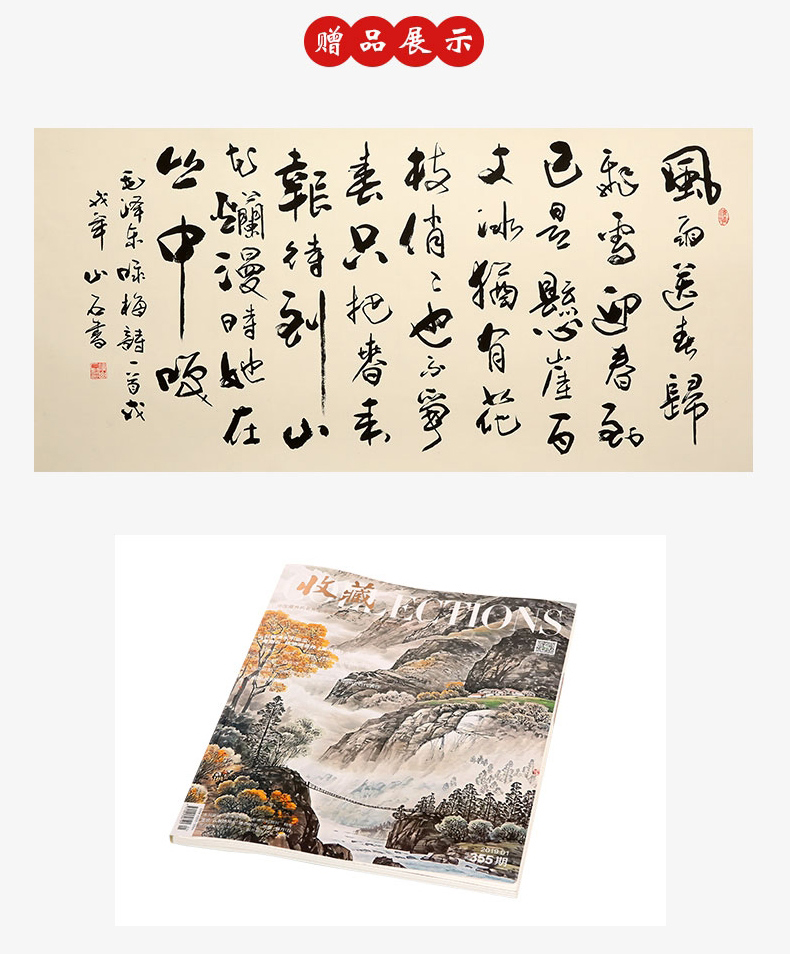 赠品展示
風雨送春歸
飛雪迎春到
已是懸崖百
丈冰猶有花
枝俏〻也不爭
春只把春來
報待到山
花爛漫時她在
丛中咲
毛澤东咏梅詩一首戊
戌年山石書
收藏
LECTIONS
2019.01
355期